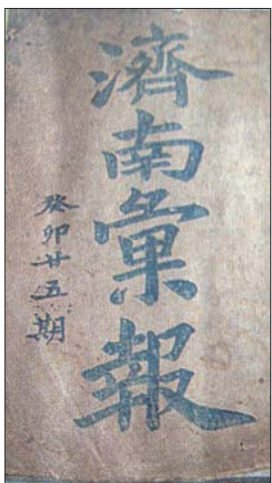 濟南彙報
癸卯廿五期